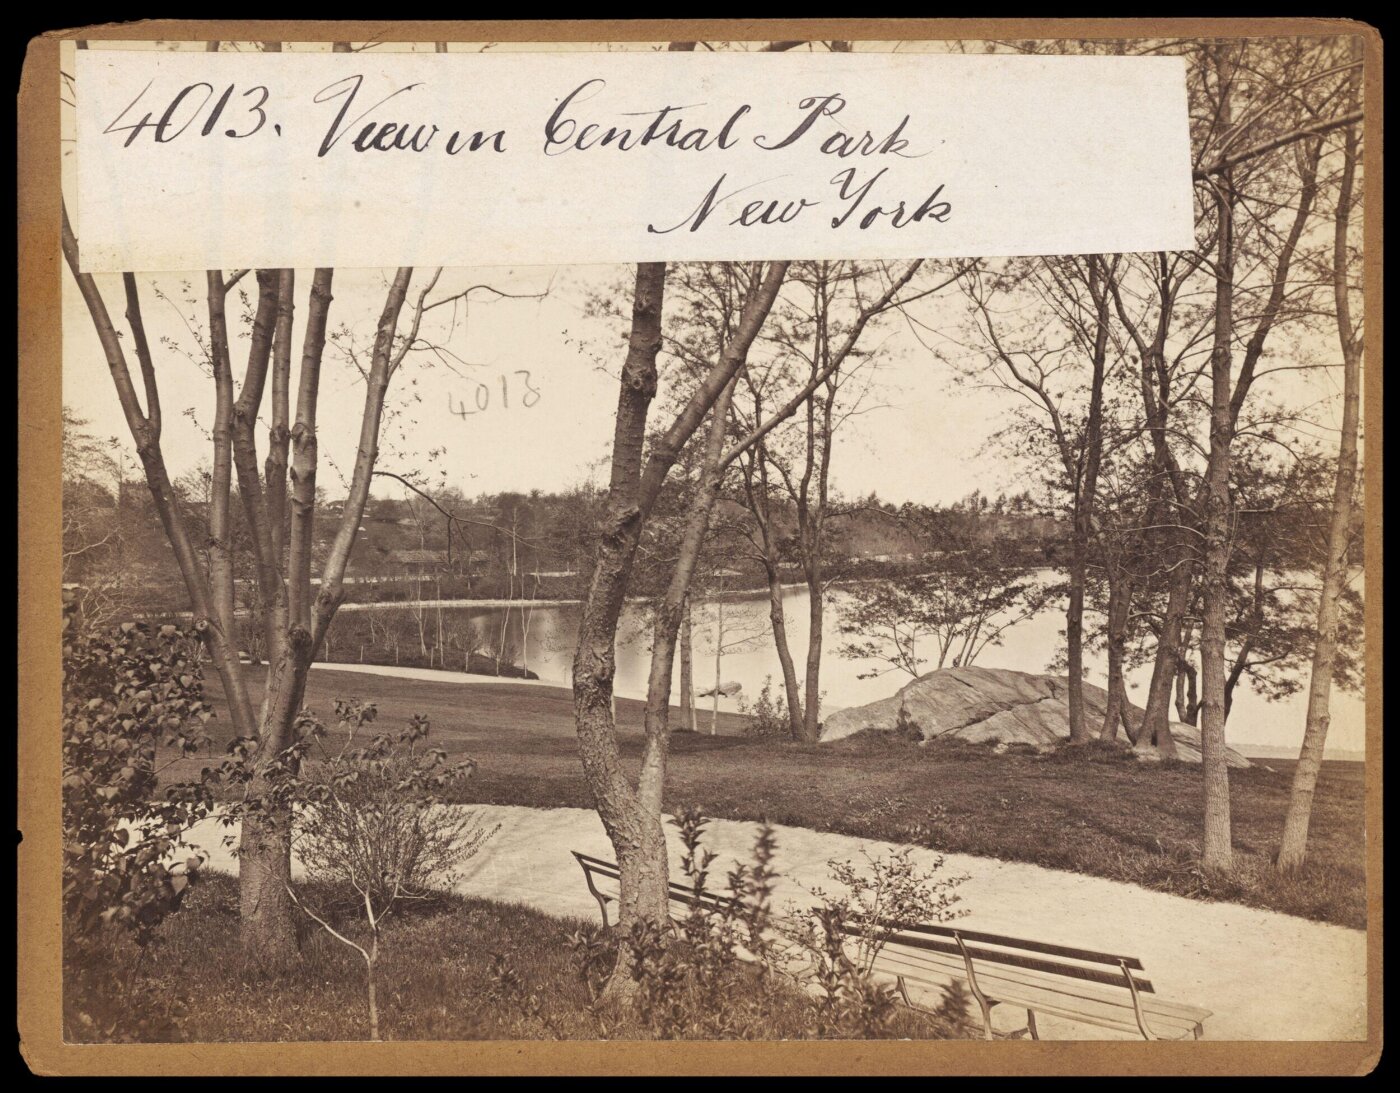 4013. View in Central Park
New York
4013